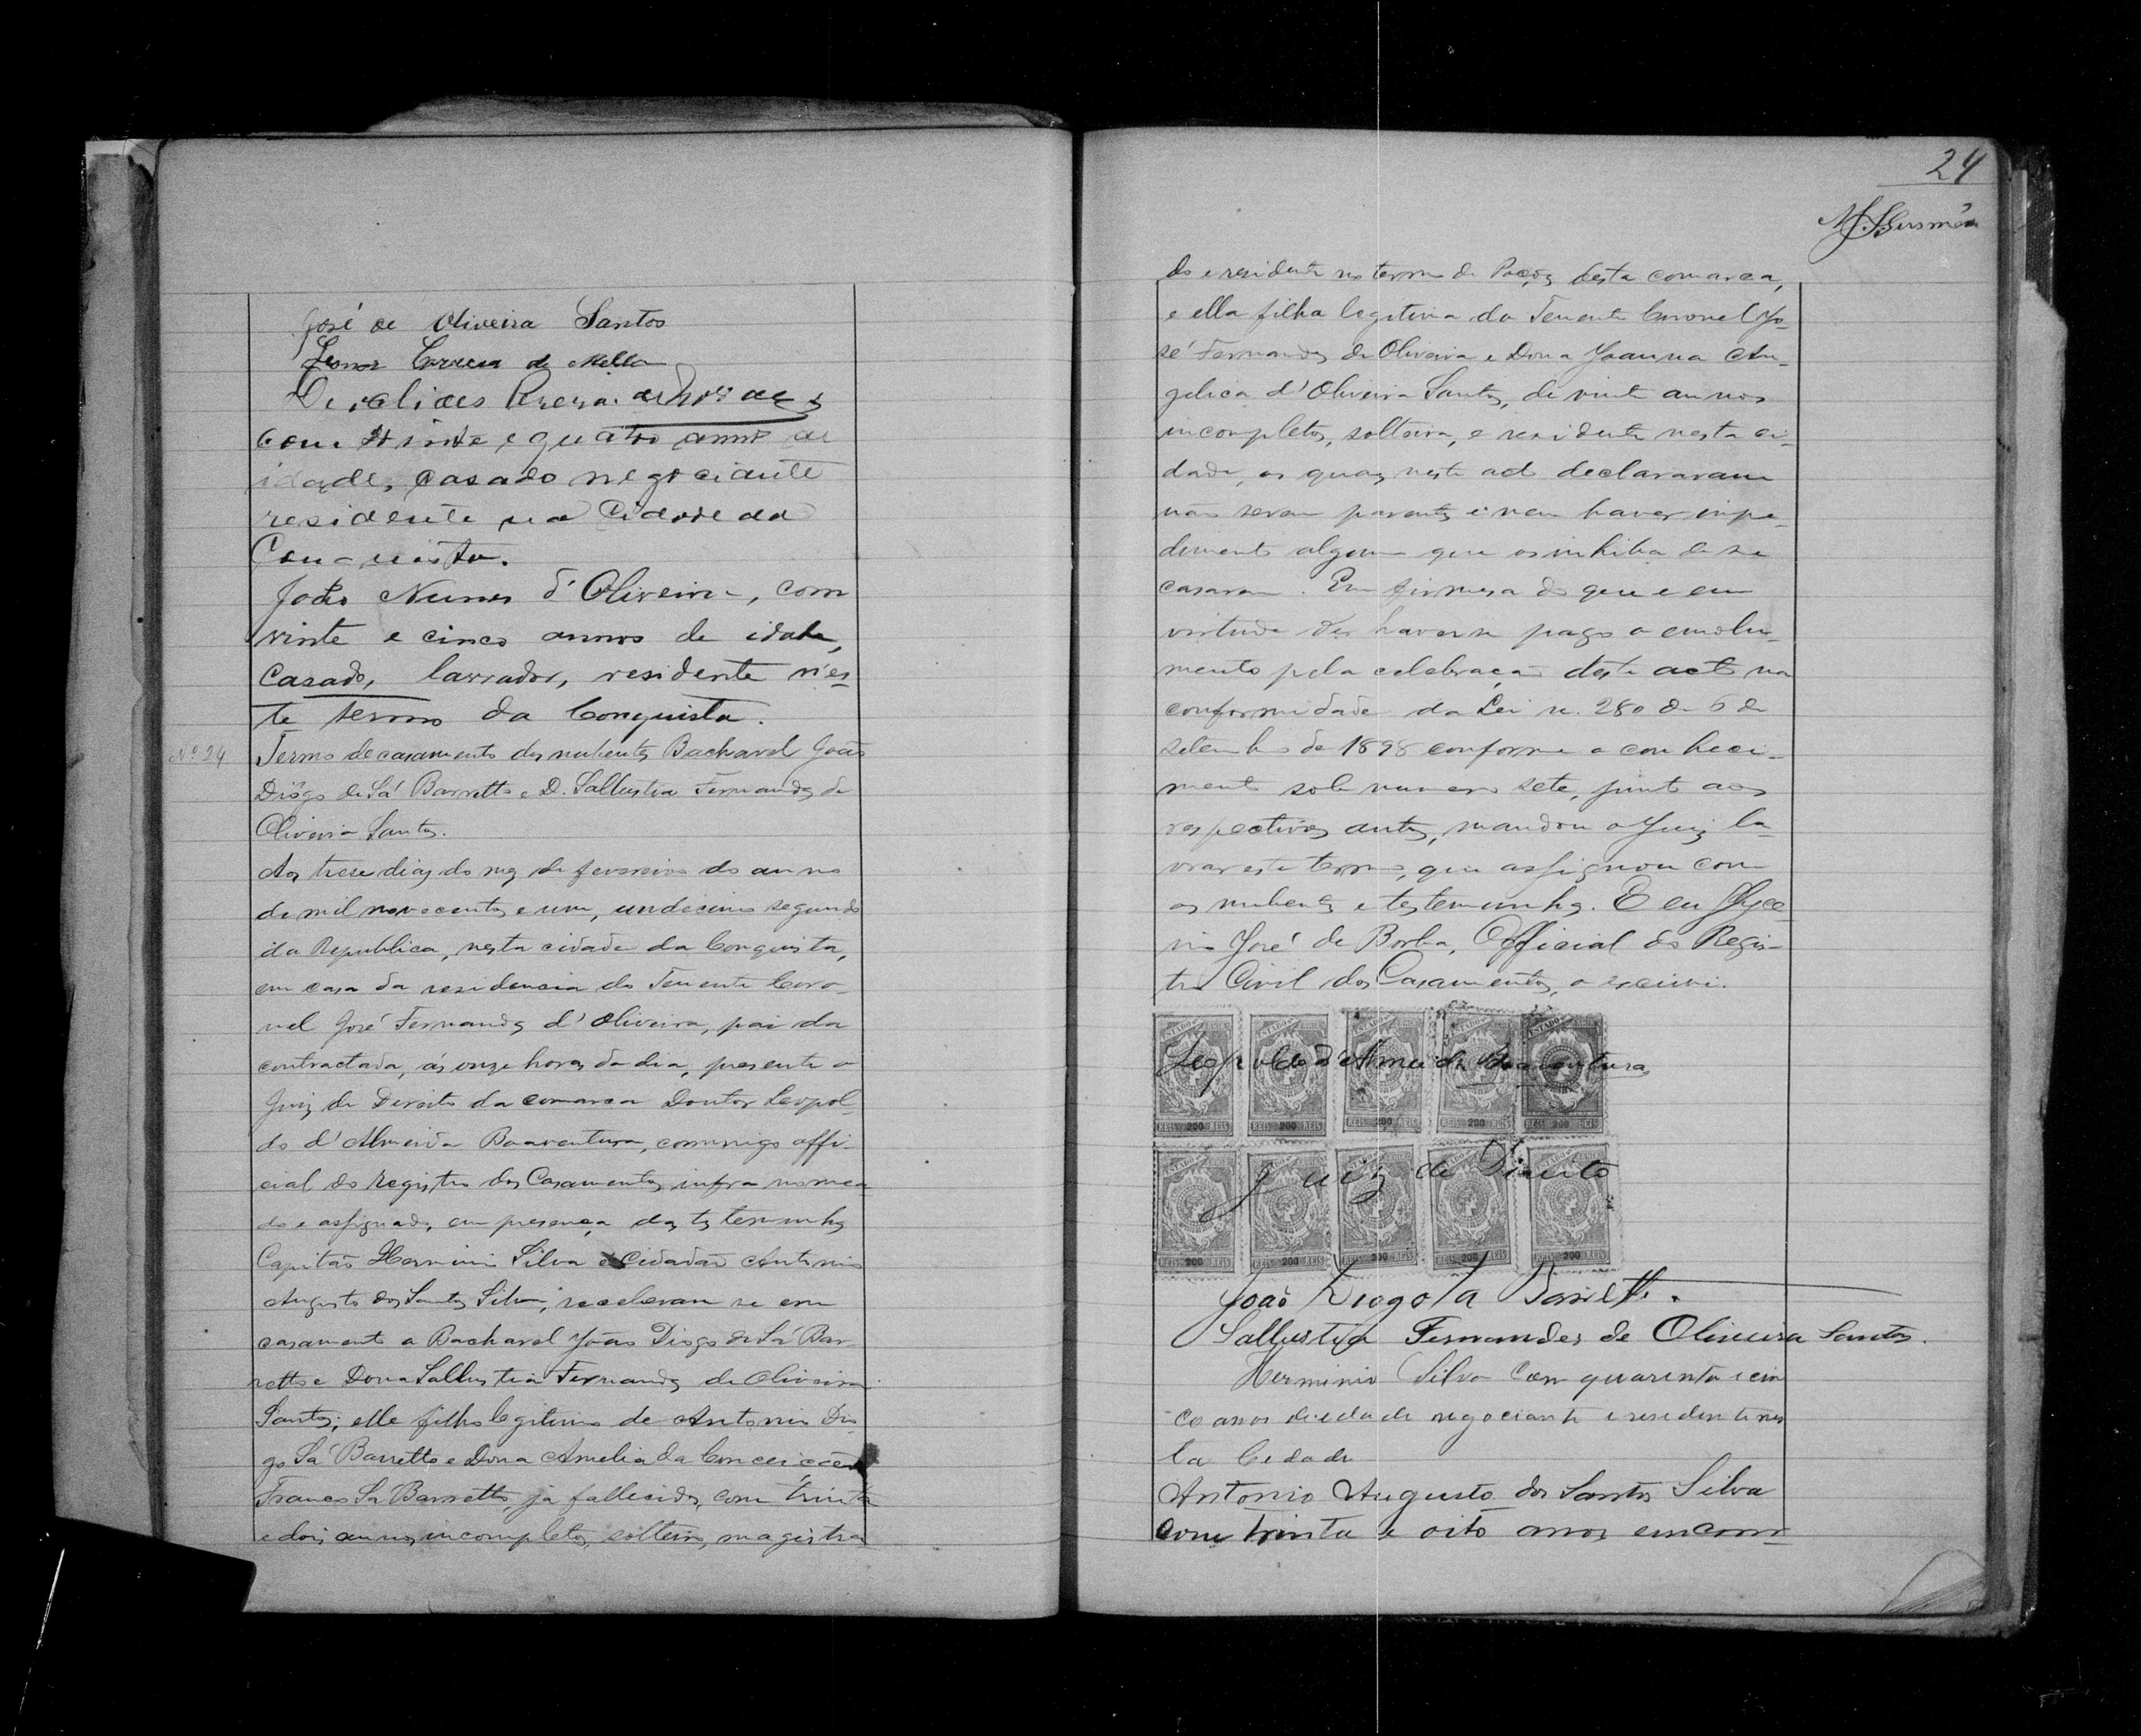 José de Oliveira Santos
Leonor Correia de Mello
Deoclides Pereira de Moraes
com trinta e quatro annos de
idade, casado negociante
residente na Cidade da
Conquista.
João Nunes d'Oliveira, com
vinte e cinco annos de idade,
casado, lavrador, residente n'es-
te termo da Conquista.
Nº 24
Termo de casamento dos nubentes Bacharel João
Diôgo de Sá Barretto e D. Sallustia Fernandes de
Oliveira Santos.
Aos trese dias do mez de fevereiro do anno
de mil novecentos e um, undecimo segundo
da Republica, nesta cidade da Conquista,
em casa da residencia do Tenente Coro-
nel José Fernandes d'Oliveira, pai da
contractada, ás onze horas do dia, presente o
Juiz de Direito da comarca Doutor Leopol-
do d'Almeida Boaventura, commigo offi-
cial do registro dos Casamentos infra nomea
do e assignado, em presença das testemunhas
Capitão Herminio Silva e cidadão Antonio
Augusto dos Santos Silva, receberam se em
casamento o Bacharel João Diogo de Sá Bar-
retto e Dona Sallustia Fernandes de Oliveira
Santos; elle filho legitimo de Antonio Dio-
go Sá Barretto e Dona Amelia da Conceição
Franco Sá Barretto, já fallecidos, com trinta
e dois annos incompletos, solteiro, magistra
24
do e residente no termo de Poções desta comarca,
e ella filha legitima do Tenente Coronel Jo-
sé Fernandes de Oliveira e Dona Joanna An-
gelica d'Oliveira Santos, de vinte annos
incompletos, solteira, e residente nesta ci-
dade, os quaes neste acto declararam
não serem parentes e nem haver impe-
dimento algum que os inhiba de se
casarem. Em firmesa do que e em
virtude de haver-se pago o emolu-
mento pela celebração deste acto na
conformidade da Lei n. 280 de 6 de
setembro de 1898 conforme o conheci-
mento sob numero sete, junto aos
respectivos autos, mandou o Juiz la-
vrar este termo, que assignou com
os nubentes e testemunhas. E eu Glyce
rio José de Borba, Official do Regis-
tro Civil dos Casamentos, o escrivi.
Leopoldo d'Almeida Boaventura
Juiz de Direito
ESTADO
REIS 200 REIS
REIS 200 REIS
REIS 200 REIS
REIS 200 REIS
REIS 200 REIS
REIS 200 REIS
REIS 200 REIS
REIS 200 REIS
REIS 200 REIS
REIS 200 REIS
João Diogo Sá Barretto.
Sallustia Fernandes de Oliveira Santos.
Herminio Silva com quarenta e cin
co anos de edade negociante e residente nes
ta Cidade
Antonio Augusto dos Santos Silva
com trinta e oito anos emcom-